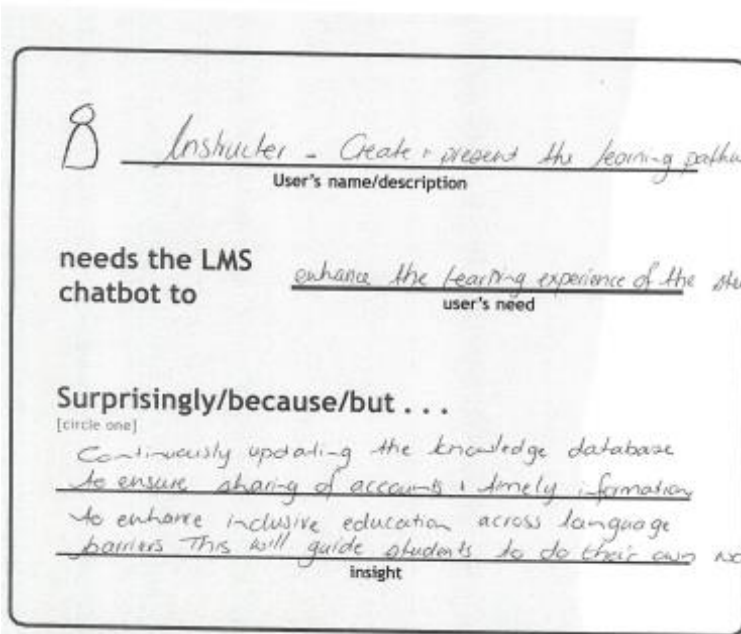 Instructer - Create + present the learning pathw
User's name/description
needs the LMS
chatbot to
enhance the learning experience of the stu
user's need
Surprisingly/because/but . . .
[circle one]
Continuously updating the knowledge database
to ensure sharing of accounts + timely information
to enhance inclusive education across language
barriers This will guide students to do their own wo
insight